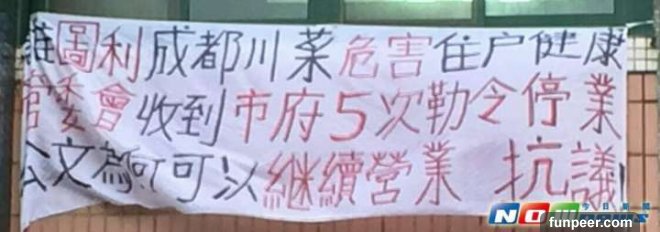 誰圖利成都川菜危害住户健康
管委會收到市府5次勒令停業
公文為何可以繼續營業 抗議
今日新聞
NOWnews
funpeer.com